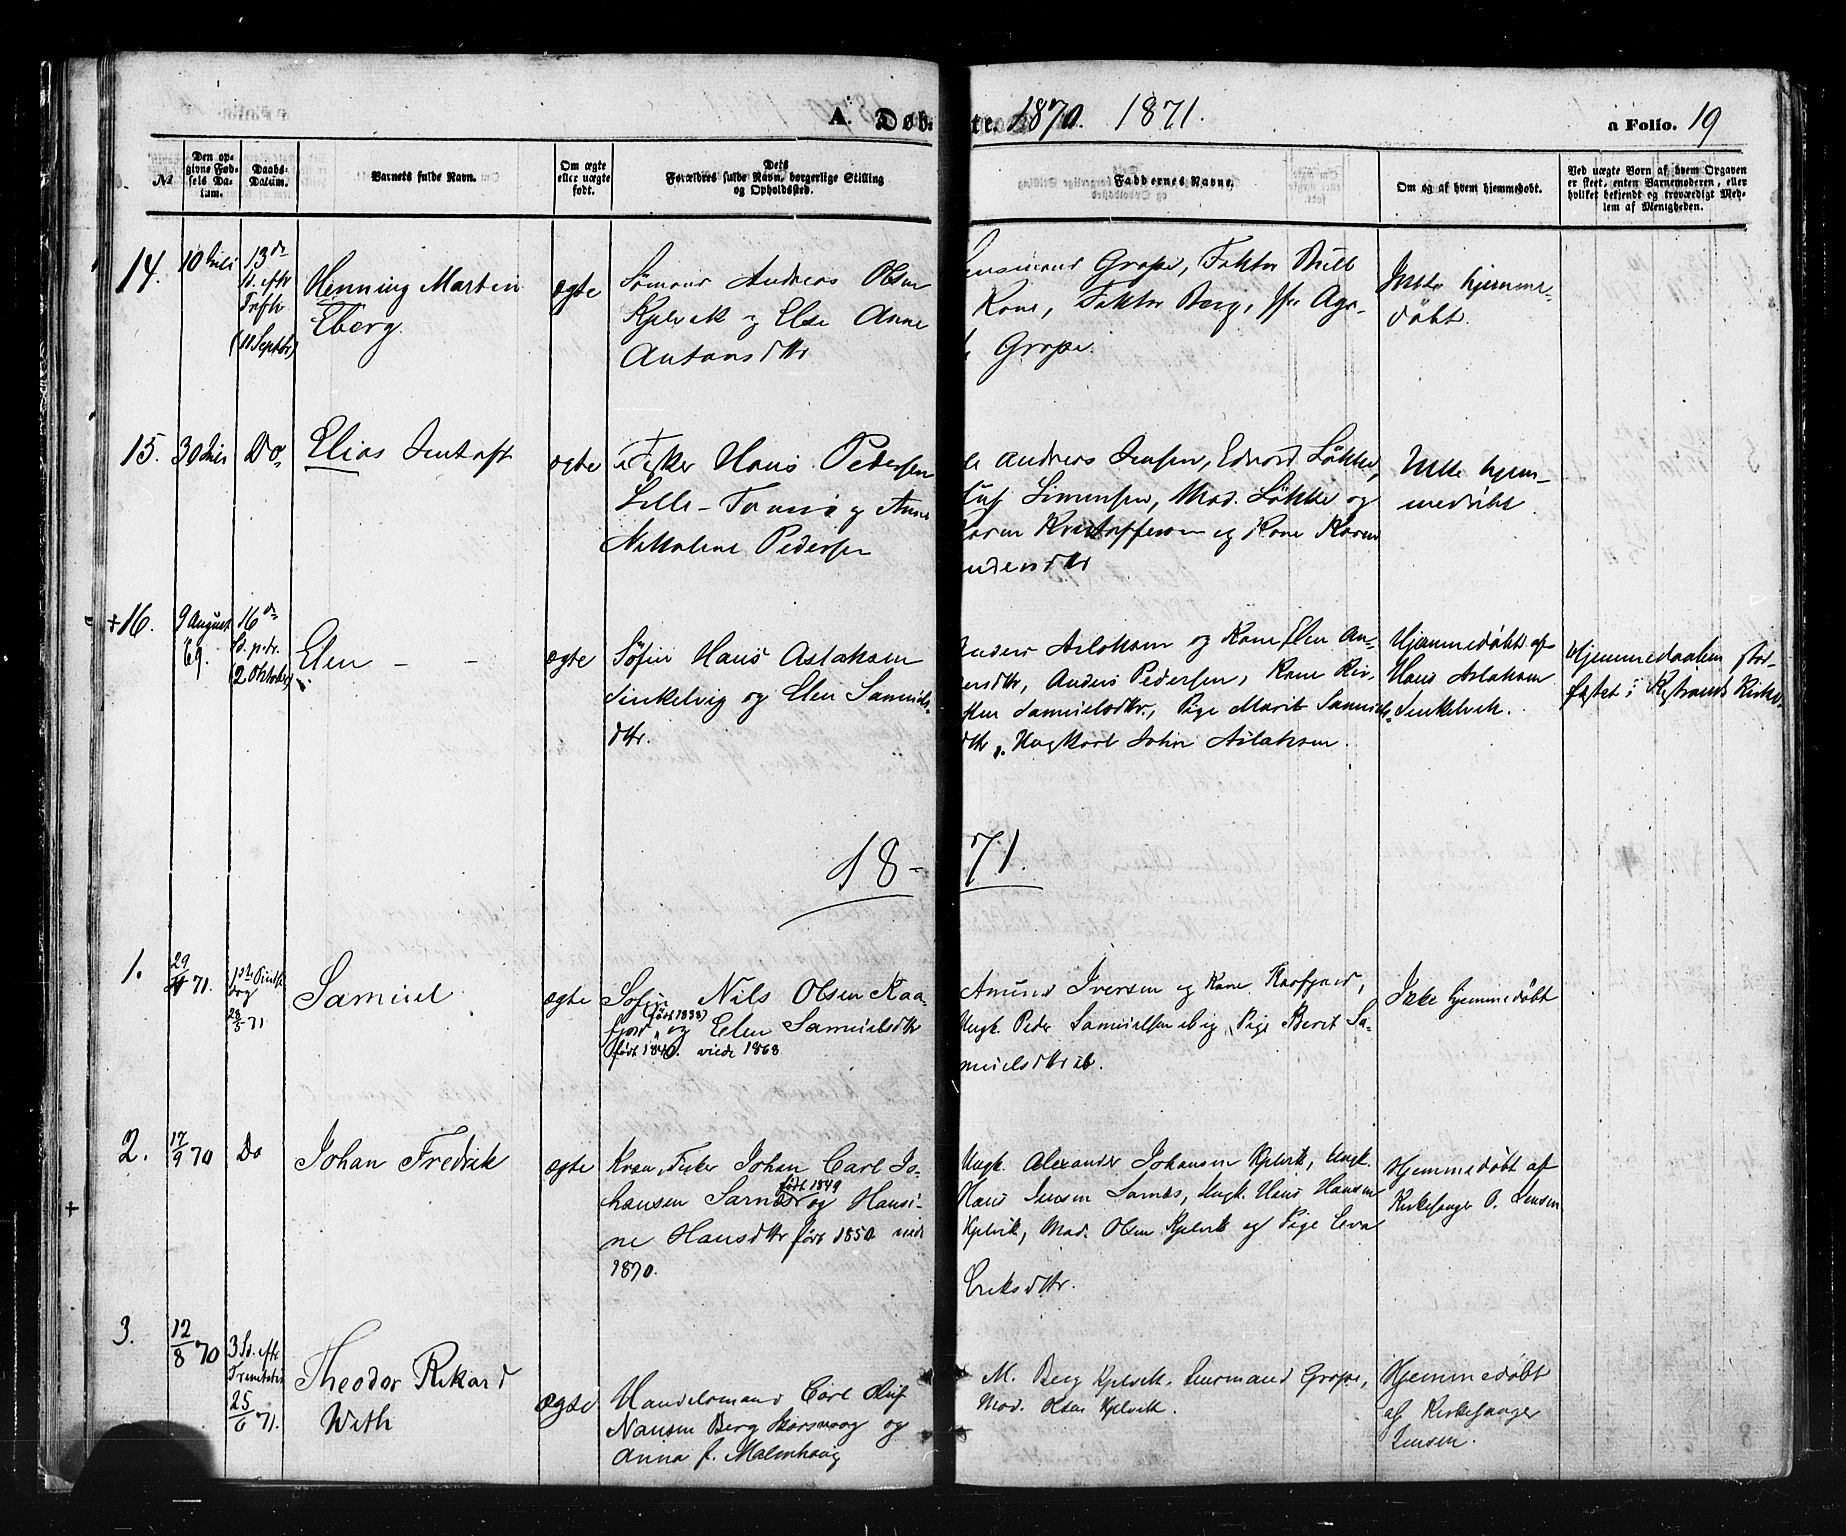 A. Døb- te. 1870. 1871. a Folio. 19
№
Den op-
givne Fød-
sels Da-
tum.
Daabs-
Datum.
Barnets fulde Navn.
Om ægte
eller uægte
født.
Dets
Forældres fulde Navn, borgerlige Stilling
og Opholdssted.
Faddernes Navne.
Om og af hvem hjemmedøbt.
Ved uægte Børn af hvem Opgaven
er skeet, enten Barnemoderen, eller
hvilket bekjendt og troværdigt Med-
lem af Menigheden.
14.
10 Juli
13de
S. eft
Trefh
(11 Septbr)
Henning Martin
Eberg.
ægte
Sømand Andreas Olsen
Kjelvik og Else Anne
Antonsdtr
Lensmand Grape, Faktor
Kone, Faktor Berg, Aga-
Grape.
Ikke hjemme-
døbt.
15.
30 Juli
Do.
Elias Jentoft
ægte
Fisker Hans Pedersen
Lille-Tamsø og Anne
Nikoline Pedersen
Andreas Jensen, Edvard Løkke,
Simonsen, Mad. Løkke og
Karen Kristoffersen og Kone Karen
Ikke hjem-
medøbt.
+16.
9 August
69.
16de
S. p. tr.
(2 Oktober)
Elen - -
ægte
Søfin Hans Aslaksen
Sinkelvig og Elen Samuels-
dtr.
Anders Aslaksen og Kone Elen An-
dersdtr, Anders Pedersen, Kone Kir-
sten Samuelsdtr., Pige Marit Samuels-
dtr, Ungkarl John Aslaksen.
Hjemmedøbt af
Hans Aslaksen
Sinkelvik.
Hjemmedaaben stad-
fæstet i Kistrands Kirke.
18-71.
1.
29/4 71.
1ste Pintse
dag
28/5 71
Samuel
ægte
Søfin Nils Olsen Kaa-
fjord (født 1838) og Elen Samuelsdtr
født 1840. viede 1868
Amund Iversen og Kone Kaafjord,
Ungk. Peder Samuelsen ib og Pige Berit Sa-
muelsdtr ib.
Ikke hjemmedøbt
2.
17/9 70
Do
Johan Fredrik
ægte
Kvæn, Fisker Johan Carl Jo-
hansen Sarnæs født 1849 og Hansi-
ne Hansdtr født 1850 viede
1870.
Ungk. Alexander Johansen Kjelvik, Ungk.
Hans Jensen Sarnæs, Ungk. Hans Hansen
Kjelvik, Mad. Olsen Kjelvik og Pige Eva
Eriksdtr.
Hjemmedøbt af
Kirkesanger O. Jensen
3.
12/8 70
3 S. eft
Trenitatis
25/6 71.
Theodor Rikard
With
ægte
Handelsmand Carl Oluf
Nansen Berg Skarsvaag og
Anna f. Malmhaag
M. Berg Kjelvik. Lensmand Grape,
Mad. Olsen Kjelvik.
Hjemmedøbt
af Kirkesanger
Jensen.